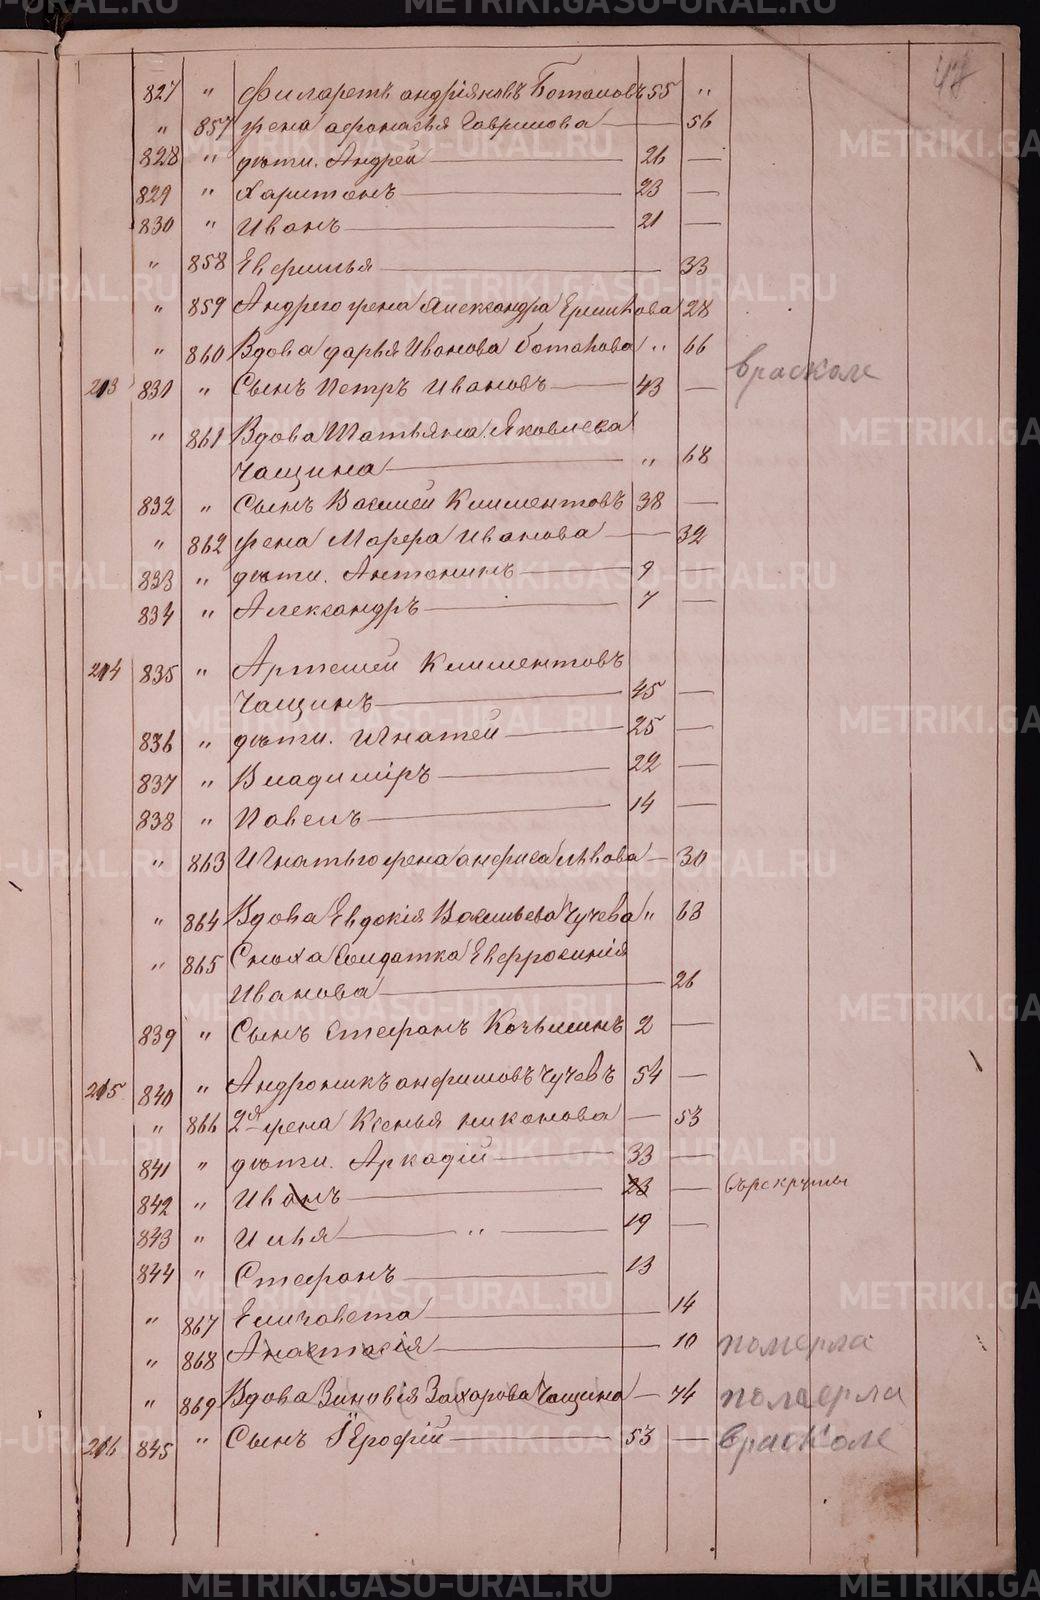 47
827 " Филаретъ андріяновъ Боталовъ 55 "
" 857 жена афонасья Гаврилова — 56
828 " дѣти. Андрей — 26 —
829 " Харитонъ — 23 —
830 " Иванъ — 21 —
" 858 — 33
" 859 Андрего жена Александра Ершкова 28
" 860 Вдова дарья Иванова " 66
213 831 " Сынъ Петръ Ивановъ — 43 — врасколе
" 861 Вдова Татьяна Яковлева
Чащина — " 68
832 " Сынъ Василей Климентовъ 38 —
" 862 жена Марфа Иванова — 32
833 " дѣти. Антонинъ — 9 —
834 " Александръ — 7 —
214 835 " Артемей Климентовъ
Чащинъ — 45 —
836 " дѣти. Игнатей — 25 —
837 " Владиміръ — 22 —
838 " Павелъ — 14 —
" 863 Игнатьго жена анфиса львова — 30
" 864 Вдова Евдокія Васильева Чучева " 63
" 865 Сноха Солдатка Евфросинія
Иванова — 26
839 " Сынъ Стефанъ 2 —
215 840 " Андроникъ анфиловъ Чучевъ 54 —
" 866 2я жена Ксенья никонова — 53
841 " дѣти. Аркадій — 33 —
842 " Иванъ — 23 — върекруты
843 " Илья — " — 19 —
844 " Стефанъ — 13
" 867 Елизавета — 14
" 868 Анастасія — 10 померла
" 869 Вдова Зиновія Захарова Чащина — 74 померла
216 845 " Сынъ Іерофій — 53 — врасколе
METRIKI.GASO-URAL.RU